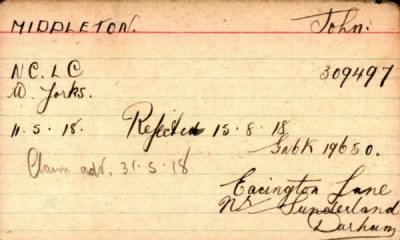 MIDDLETON. John.
N C. L C 309497
W. Yorks.
11.5.18. Rejected 15.8.18
Gn6K 19650.
Claim adv. 31.5.18
Eacington Lane
Nr Sunderland
Durham